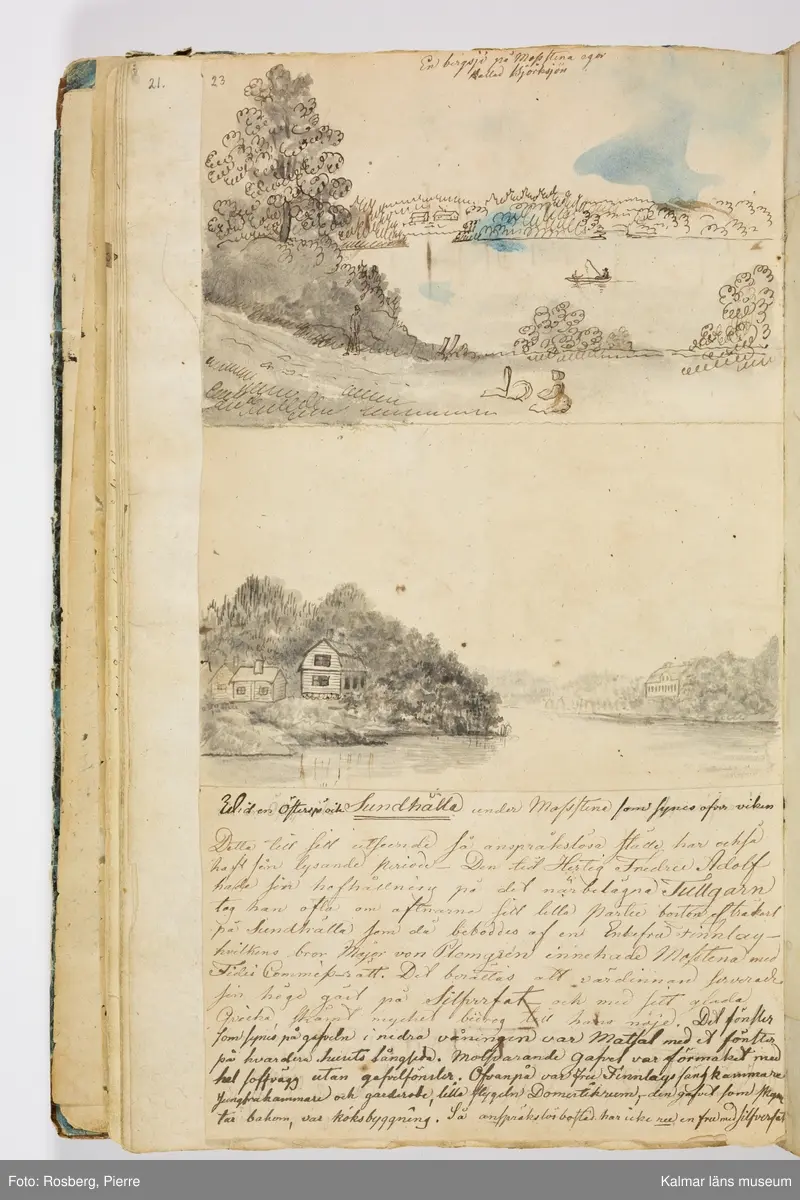 21.
23
En bergsjö på Mosstena egor
kallad Björksjön
Wid en Östersjövik Sundhälla under Mosstena som synes öfver viken
Detta till sitt utseende så anspråkslösa ställe, har också
haft sin lysande period – Den tid Hertig Fredric Adolf
hade sin hofhållning på det närbelägna Tullgarn
tog han ofta om aftnarne sitt lilla partie boston
på Sundhälla som då beboddes af en Enkefru Finnlay –
hvilkens bror Major von Plomgrén innehade Mosstena med
Fidei Commiss-rätt. Det berättas att värdinnan serverade
sin höge gäst på Silfverfat och med sitt glada
qvicka skämt mycket bidrog till hans nöje. Det fönster
som synes på gafveln i nedra våningen var Matsal med et fönster
på hvardera husets långsida. Motsvarande gafvel var förmaket med
hel soffvägg utan gafvelfönster. Ofvanpå var Fru Finnlays sängkammare
Jungfrukammare och garderobe, lilla flygeln Domestikrum, den gafvel som
tar bakom, var köksbyggning. Så anspråkslös bostad har icke nu en fru med silfverfat
Foto: Rosberg, Pierre
Kalmar läns museum